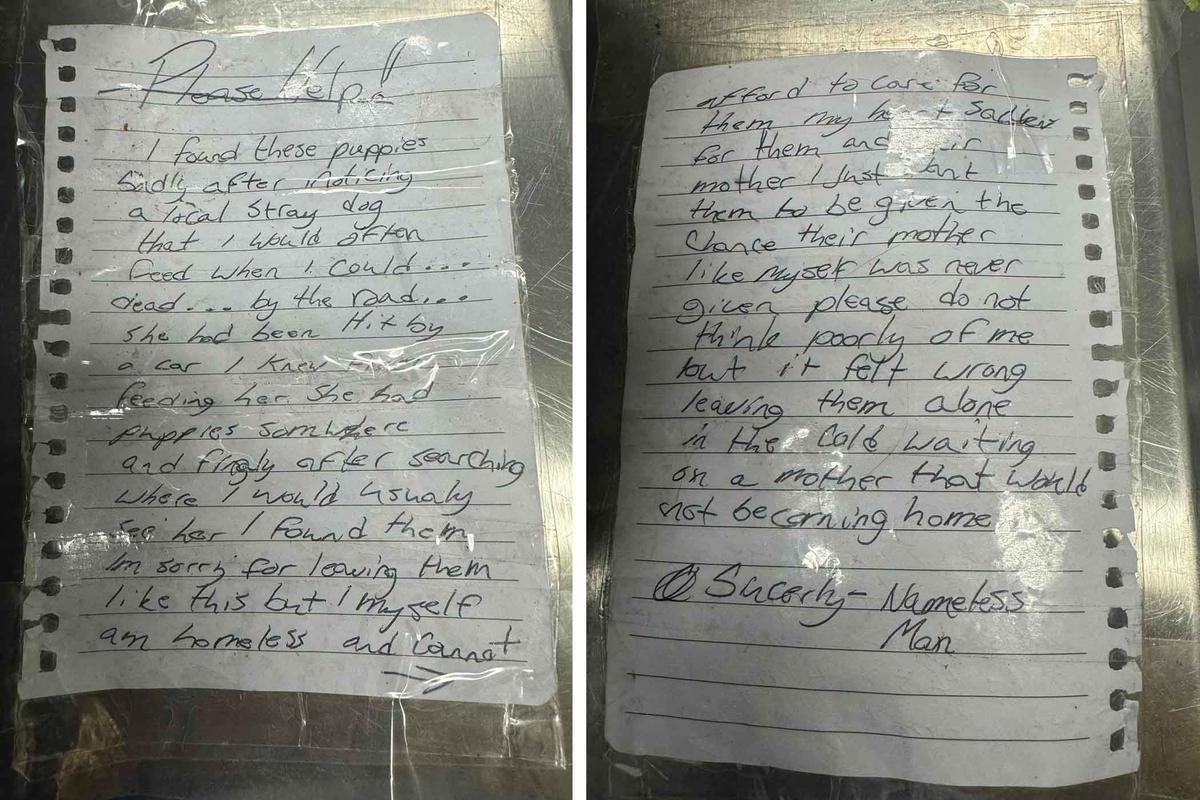 Please Help!
I found these puppies
Sadly after noticing
a local Stray dog
that I would often
feed when I could...
dead... by the road...
She had been Hit by
a car I knew
feeding her She had
puppies somwhere
and finaly after searching
where I would usualy
see her I found them
Im sorry for leaving them
like this but I myself
am homeless and Cannot
afford to care for
them my heart
for them and
mother I Just want
them to be given the
Chance their mother
like myself was never
given please do not
think poorly of me
but it felt wrong
leaving them alone
in the Cold waiting
on a mother that would
not be coming home
Sincerly - Nameless
Man